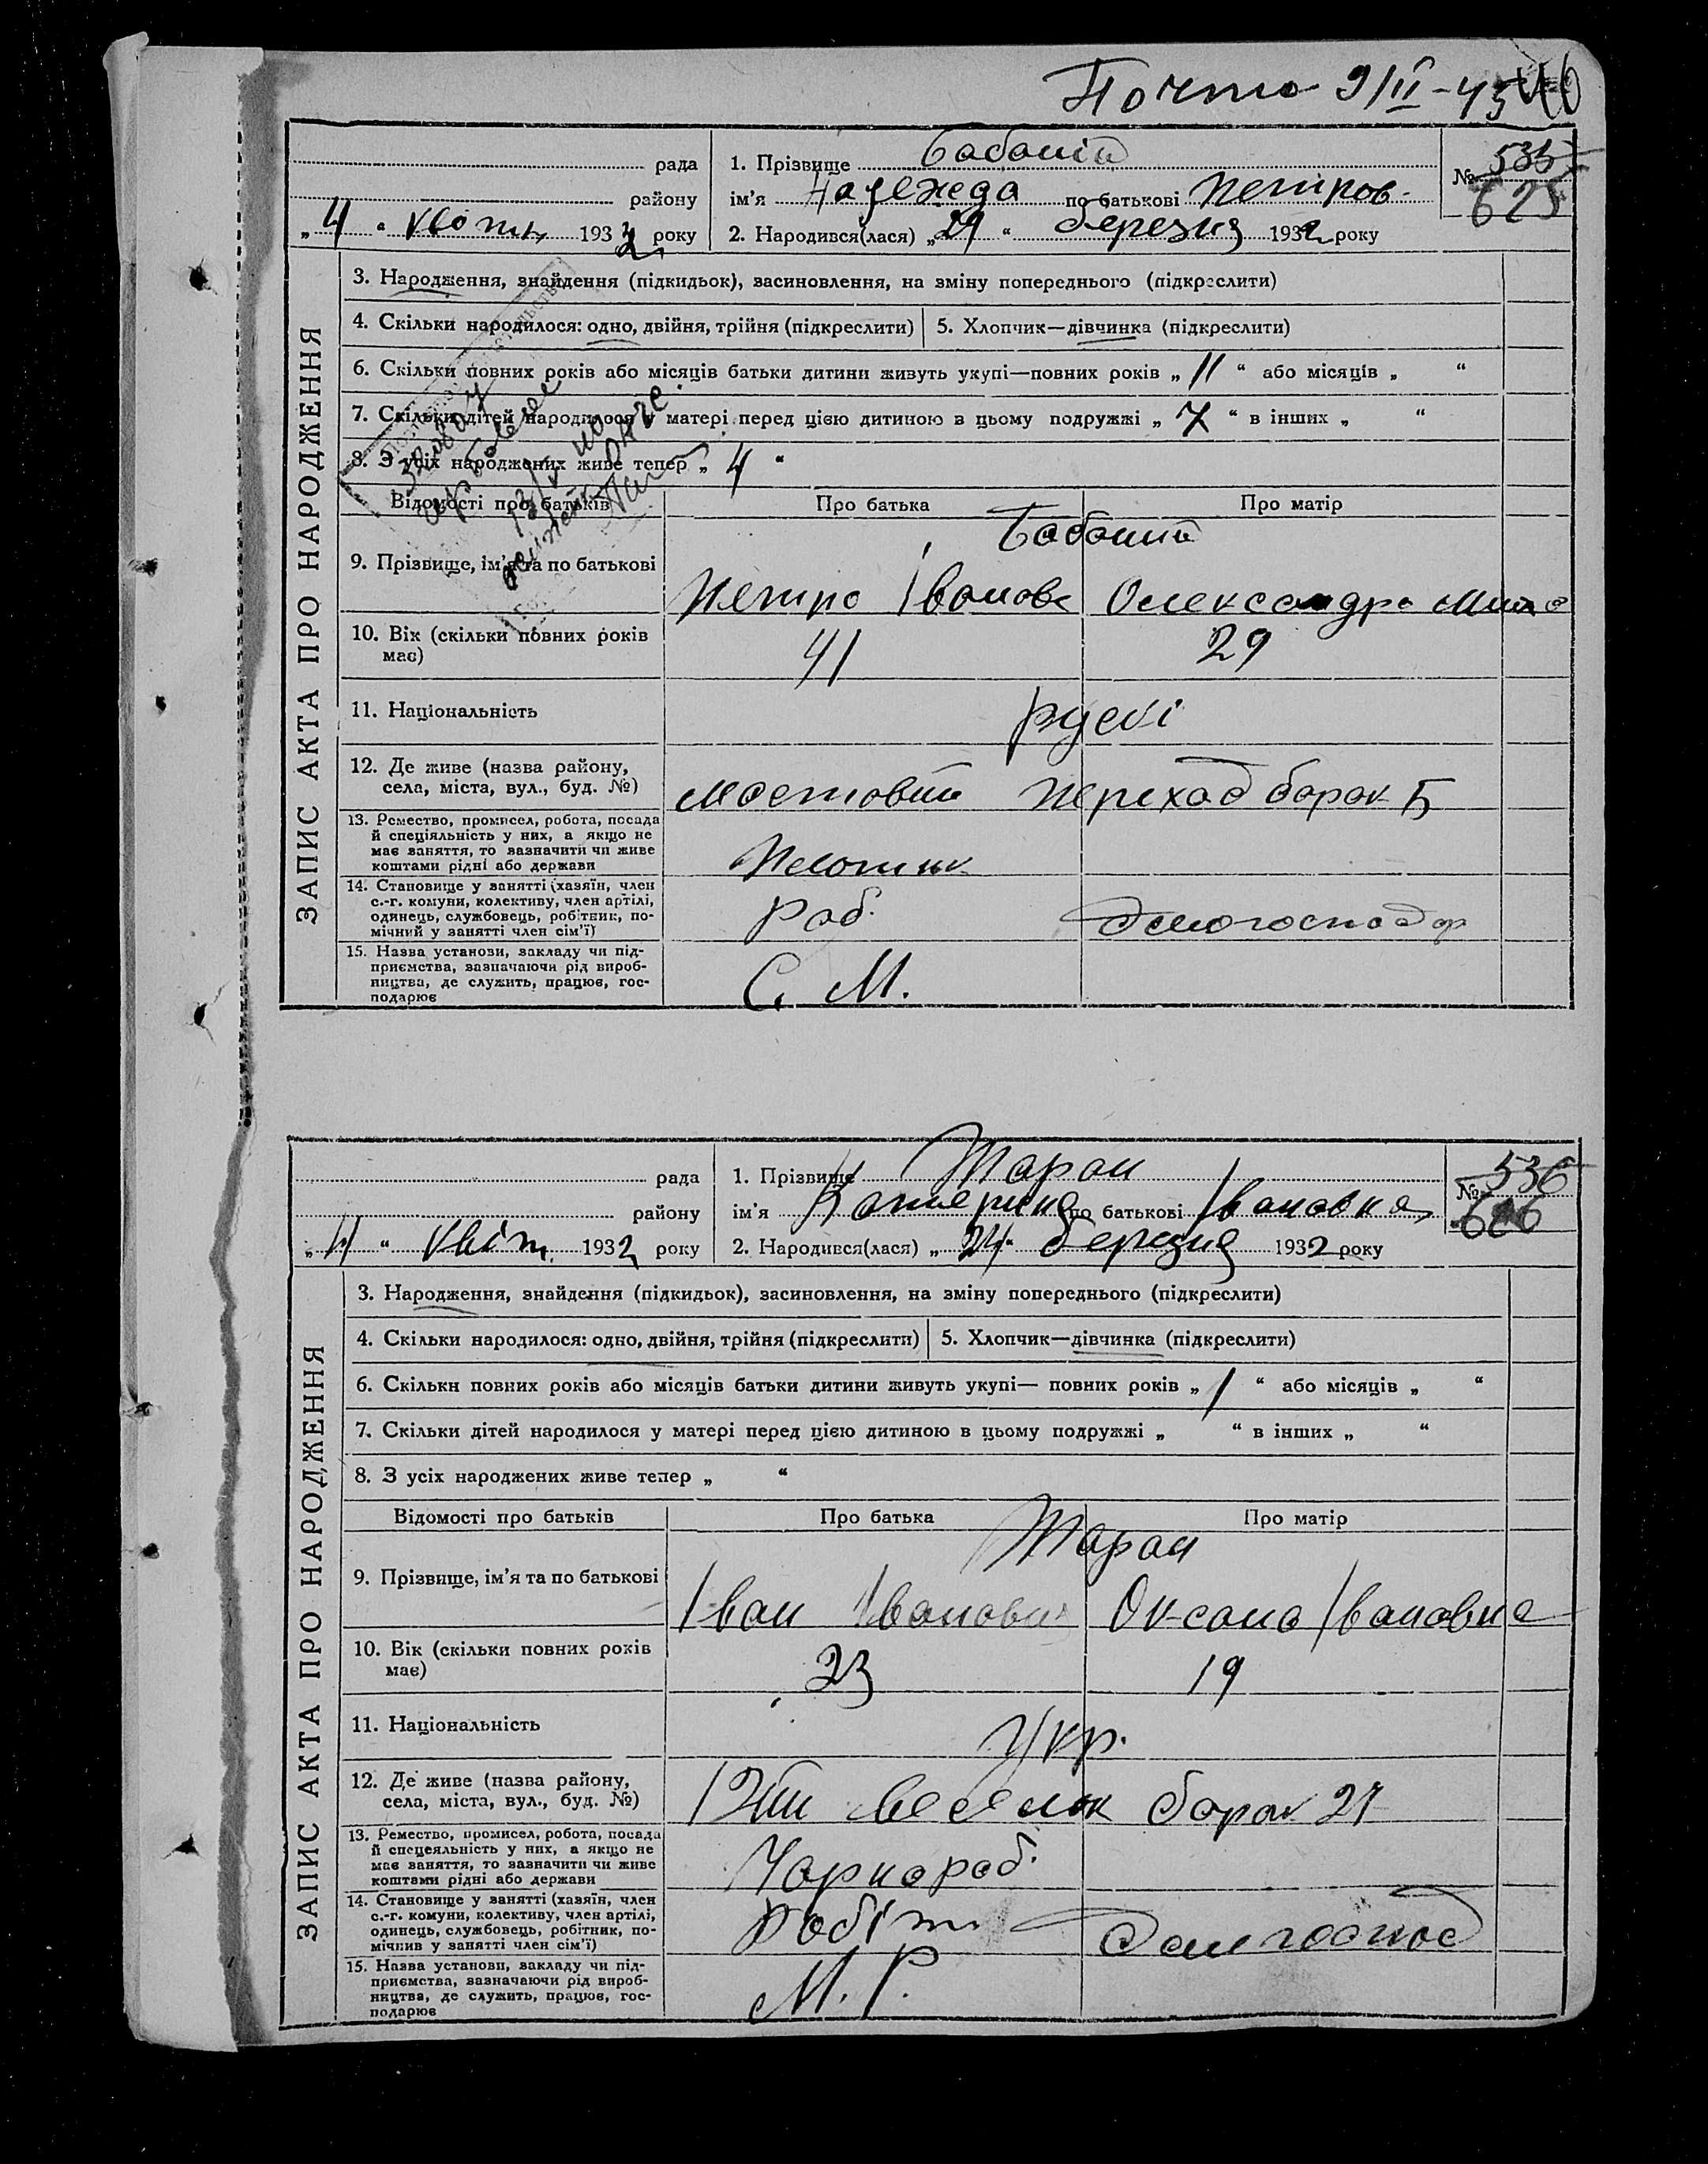 Почта 9/II-45
рада
1. Прізвище Бабаній
№ 535
625
району
ім'я Надежда по батькові Петров.
„ 4 “ квітн 1932 року
2. Народився(лася) „ 29 “ березня 1932 року
ЗАПИС АКТА ПРО НАРОДЖЕННЯ
3. Народження, знайдення (підкидьок), засиновлення, на зміну попереднього (підкреслити)
4. Скільки народилося: одно, двійня, трійня (підкреслити)
5. Хлопчик—дівчинка (підкреслити)
6. Скільки повних років або місяців батьки дитини живуть укупі—повних років „ 11 “ або місяців „ “
7. Скільки дітей народилося у матері перед цією дитиною в цьому подружжі „ 7 “ в інших „ “
8. З усіх народжених живе тепер „ 4 “
Відомості про батьків
Про батька
Про матір
Бабаний
9. Прізвище, ім'я та по батькові
Петро Іванов
Олександра
10. Вік (скільки повних років має)
41
29
11. Національність
рускі
12. Де живе (назва району, села, міста, вул., буд. №)
Мостовий Переход барак 5
13. Ремество, промисел, робота, посада й спеціяльність у них, а якщо не має заняття, то зазначити чи живе коштами рідні або держави
Плотник
14. Становище у занятті (хазяїн, член с.-г. комуни, колективу, член артілі, одинець, службовець, робітник, помічний у занятті член сім'ї)
Роб.
Домогосподар
15. Назва установи, закладу чи підприємства, зазначаючи рід виробництва, де служить, працює, господарює
С. М.
рада
1. Прізвище Таран
№ 536
626
району
ім'я Катерина по батькові Івановна
„ 4 “ квіт. 1932 року
2. Народився(лася) „ 24 “ березня 1932 року
ЗАПИС АКТА ПРО НАРОДЖЕННЯ
3. Народження, знайдення (підкидьок), засиновлення, на зміну попереднього (підкреслити)
4. Скільки народилося: одно, двійня, трійня (підкреслити)
5. Хлопчик—дівчинка (підкреслити)
6. Скільки повних років або місяців батьки дитини живуть укупі— повних років „ 1 “ або місяців „ “
7. Скільки дітей народилося у матері перед цією дитиною в цьому подружжі „ “ в інших „ “
8. З усіх народжених живе тепер „ “
Відомості про батьків
Про батька
Про матір
Таран
9. Прізвище, ім'я та по батькові
Іван Іванович
Оксана Івановна
10. Вік (скільки повних років має)
23
19
11. Національність
Укр.
12. Де живе (назва району, села, міста, вул., буд. №)
12ий Веселок барак 27
13. Ремество, промисел, робота, посада й спецеяльність у них, а якщо не має заняття, то зазначити чи живе коштами рідні або держави
Чорнороб.
14. Становище у занятті (хазяїн, член с.-г. комуни, колективу, член артілі, одинець, службовець, робітник, помічнив у занятті член сім'ї)
Робітн
Домгоспод
15. Назва установи, закладу чи підприємства, зазначаючи рід виробництва, де служить, працює, господарює
М. Р.